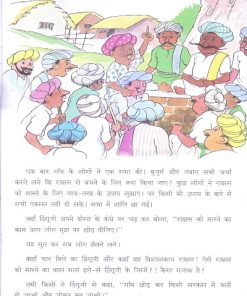 एक बार गाँव के लोगों ने एक सभा की। बुजुर्ग और जवान सभी चर्चा
करने लगे कि राक्षस से बचने के लिए क्या किया जाए? कुछ लोगों ने राक्षस
को मारने के लिए तरह-तरह के उपाय सुझाए। पर किसी भी उपाय के बारे में
सभी एकमत नहीं हो सके। सभा में शांति छा गई।
वहाँ ठिंगूजी अपने दोस्त के कंधे पर चढ़ कर बोला, "राक्षस को मारने का
काम आप लोग मुझ पर छोड़ दीजिए।"
यह सुन कर सब लोग हँसने लगे।
कहाँ चार बित्ते का ठिंगूजी और कहाँ वह विशालकाय राक्षस! ऐसे राक्षस
को मारने का काम भला इत्ते-से ठिंगूजी के जिम्मे? कैसा मजाक है।
तभी किसी ने ठिंगूजी से कहा, "गाँव छोड़ कर किसी सरकस में भर्ती
हो जाओ और जोकर बन जाओ।"